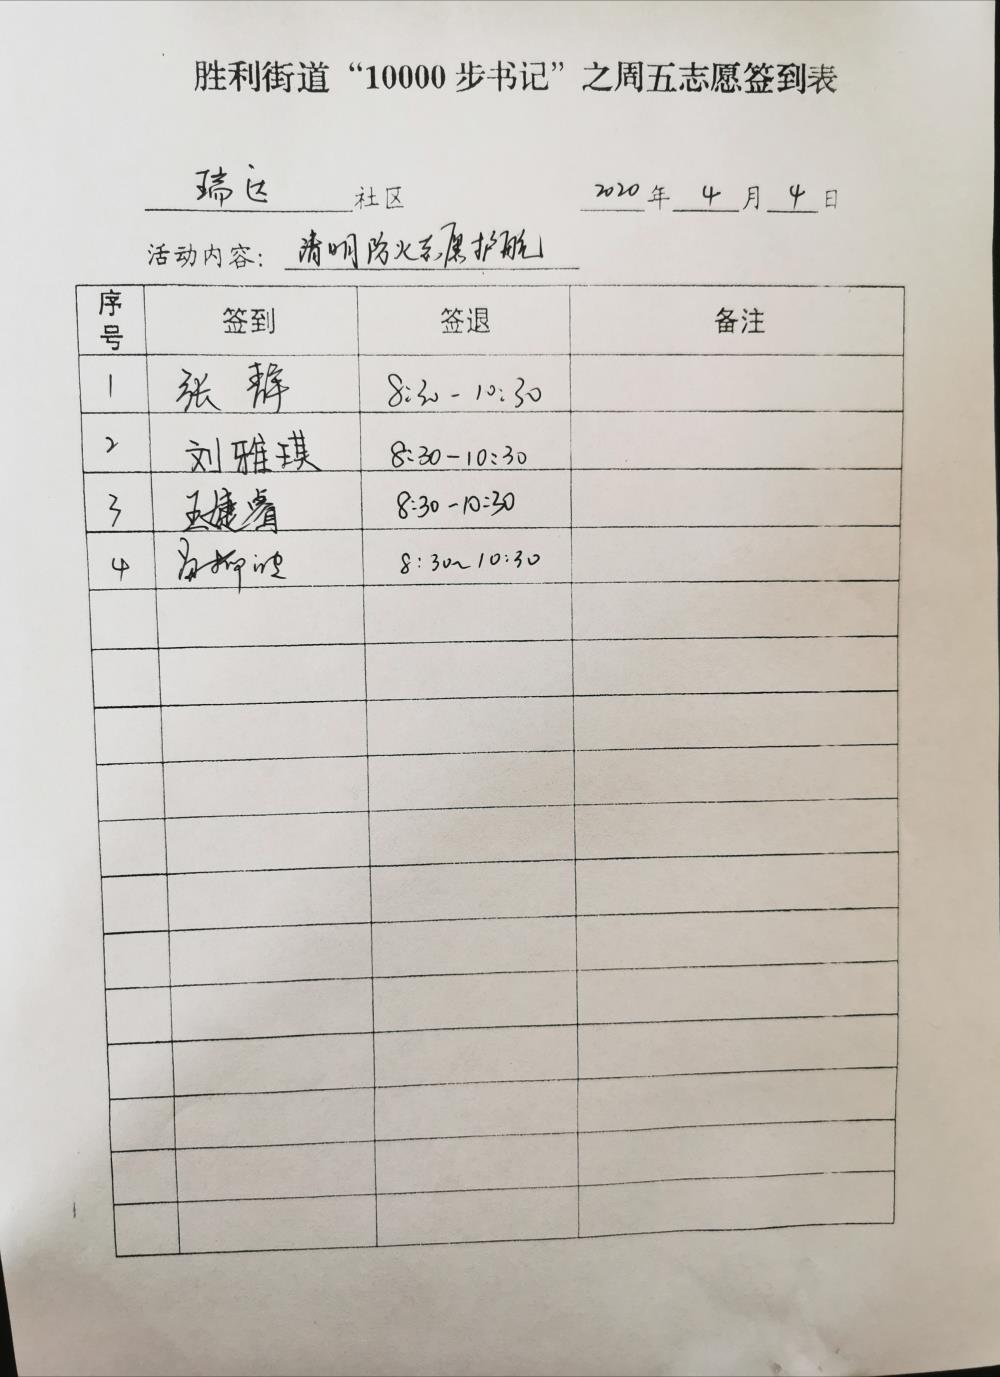 胜利街道“10000步书记”之周五志愿签到表
瑞达 社区 2020年4月4日
活动内容：清明防火 护航
序号 签到 签退 备注
1 张静 8:30-10:30
2 刘雅琪 8:30-10:30
3 王婕睿 8:30-10:30
4 8:30~10:30